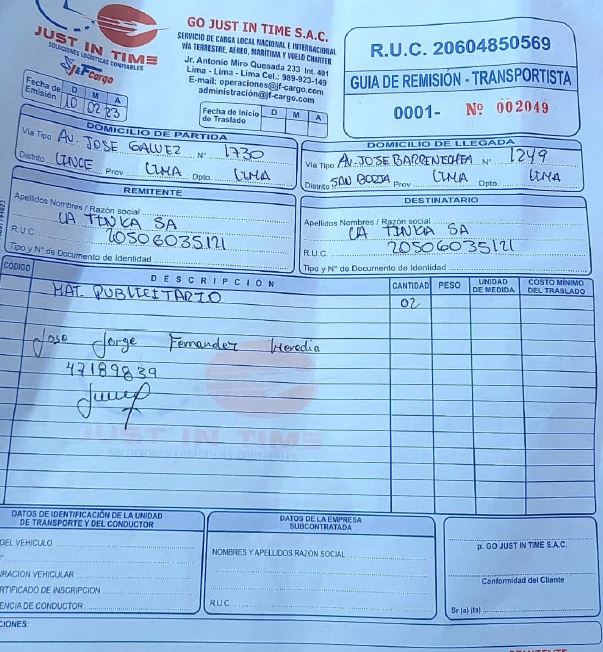 JUST IN TIME
SOLUCIONES LOGÍSTICAS CONFIABLES
J&F Cargo
GO JUST IN TIME S.A.C.
SERVICIO DE CARGA LOCAL NACIONAL E INTERNACIONAL
VÍA TERRESTRE, AÉREO, MARÍTIMA Y VUELO CHARTER
Jr. Antonio Miro Quesada 233 Int. 401
Lima - Lima - Lima Cel.: 989-923-149
E-mail: operaciones@jf-cargo.com
administración@jf-cargo.com
R.U.C. 20604850569
GUIA DE REMISIÓN - TRANSPORTISTA
0001- Nº 002049
Fecha de Emisión D M A
10 02 23
Fecha de Inicio de Traslado D M A
DOMICILIO DE PARTIDA
Vía Tipo AV. JOSE GALVEZ Nº 1730
Distrito LINCE Prov LIMA Dpto. LIMA
DOMICILIO DE LLEGADA
Vía Tipo AV. JOSE BARRENECHEA Nº 1249
Distrito SAN BORJA Prov LIMA Dpto. LIMA
REMITENTE
Apellidos Nombres / Razón social
LA TINKA SA
R.U.C. 20506035121
Tipo y N° de Documento de Identidad
DESTINATARIO
Apellidos Nombres / Razón social
LA TINKA SA
R.U.C. 20506035121
Tipo y N° de Documento de Identidad
CÓDIGO DESCRIPCIÓN CANTIDAD PESO UNIDAD DE MEDIDA COSTO MÍNIMO DEL TRASLADO
MAT. PUBLICITARIO 02
Jose Jorge Fernandez Heredia
47189839
JUST IN TIME
SOLUCIONES LOGÍSTICAS CONFIABLES
DATOS DE IDENTIFICACIÓN DE LA UNIDAD
DE TRANSPORTE Y DEL CONDUCTOR
DEL VEHICULO
URACION VEHICULAR
RTIFICADO DE INSCRIPCION
ENCIA DE CONDUCTOR
DATOS DE LA EMPRESA
SUBCONTRATADA
NOMBRES Y APELLIDOS RAZON SOCIAL
R.U.C.
p. GO JUST IN TIME S.A.C.
Conformidad del Cliente
Sr (a) (ta)
CIONES: